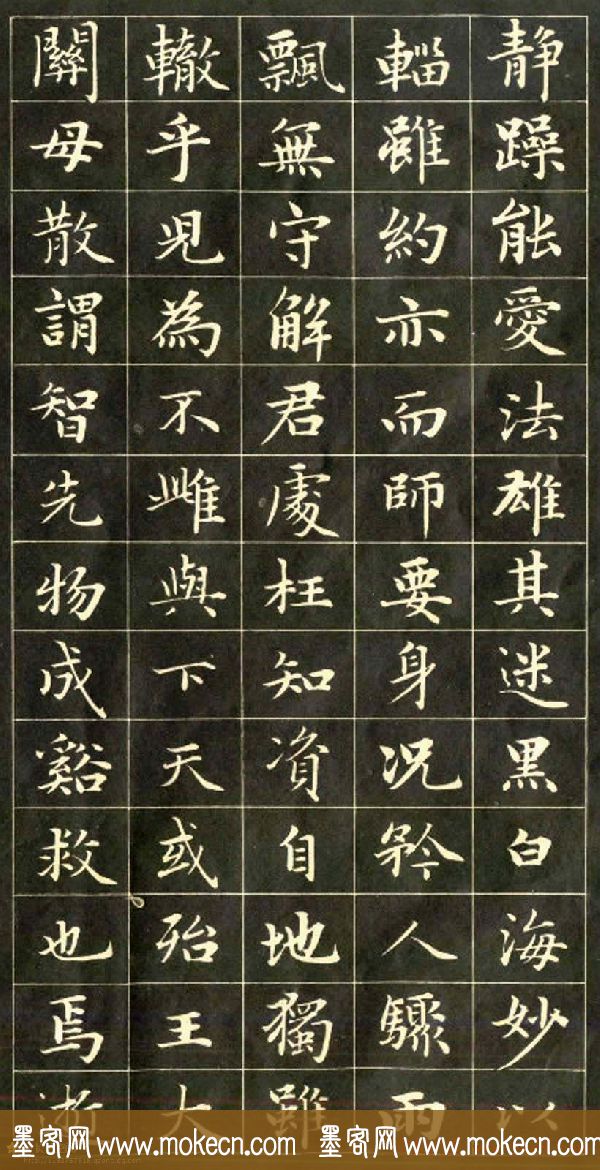 静躁能愛法雄其迷黒白海妙以
輜雖約亦而師要身况矜人驟雨
飄無守解君處枉知資自地獨雖
轍乎児為不雌與下天或殆王大
關母散謂智先物成谿救也焉
墨客网 www.mokecn.com 墨客网 www.mokecn.com